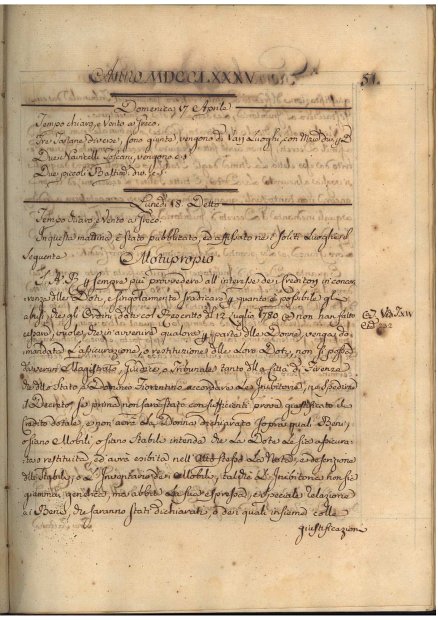 Anno MDCCLXXXV
51.
Domenica 17 Aprile
Tempo chiaro, e Vento a Greco.
Tre Tartane diverse, sono giunte, vengono da Varj Luoghi, con
Due Navicelli Toscani, vengono
Due piccoli Bastim: div:
Lunedì 18 Detto
Tempo Chiaro, e Vento a Greco.
In questa mattina, è stato pubblicato, ed affissato nei Soliti Luoghi il
Seguente Motuproprio
S. A. R. sempre più provvedere all'interesse dei Creditori in concor
renza delle Doti, e singolarmente Sradicare quanto è possibile gl'
abusi, che gl'Ordini dati col Rescritto del 12 Luglio 1780 non han fatto
cessare, vuole, che in avvenire qualora parte delle Donne, venga do
mandata L'assicurazione, o restituzione delle Loro Doti, non si possa
da verun Magistrato, Giudice, o Tribunale tanto della Città di Firenze
che dello Stato, e Dominio Fiorentino accordare Le Inibitorie, nè spedire
il Decreto, se prima non sarà stato con sufficienti prove giustificato il
Credito dotale, e non avrà La Donna dichiarato sopra quali Beni,
o siano Mobili, o siano Stabili intenda che La Dote Le sia assicura
ta, o restituita, ed avrà esibita nell'Atto stesso La Nota, e descrizione
degli Stabili, o L'Inventario dei Mobili, talchè L'Inibitoria non sia
giammai generica, ma abbia La sua espressa, e speciale relazione
ai Beni, che saranno stati dichiarati, e dei quali insieme colla
giustificazione